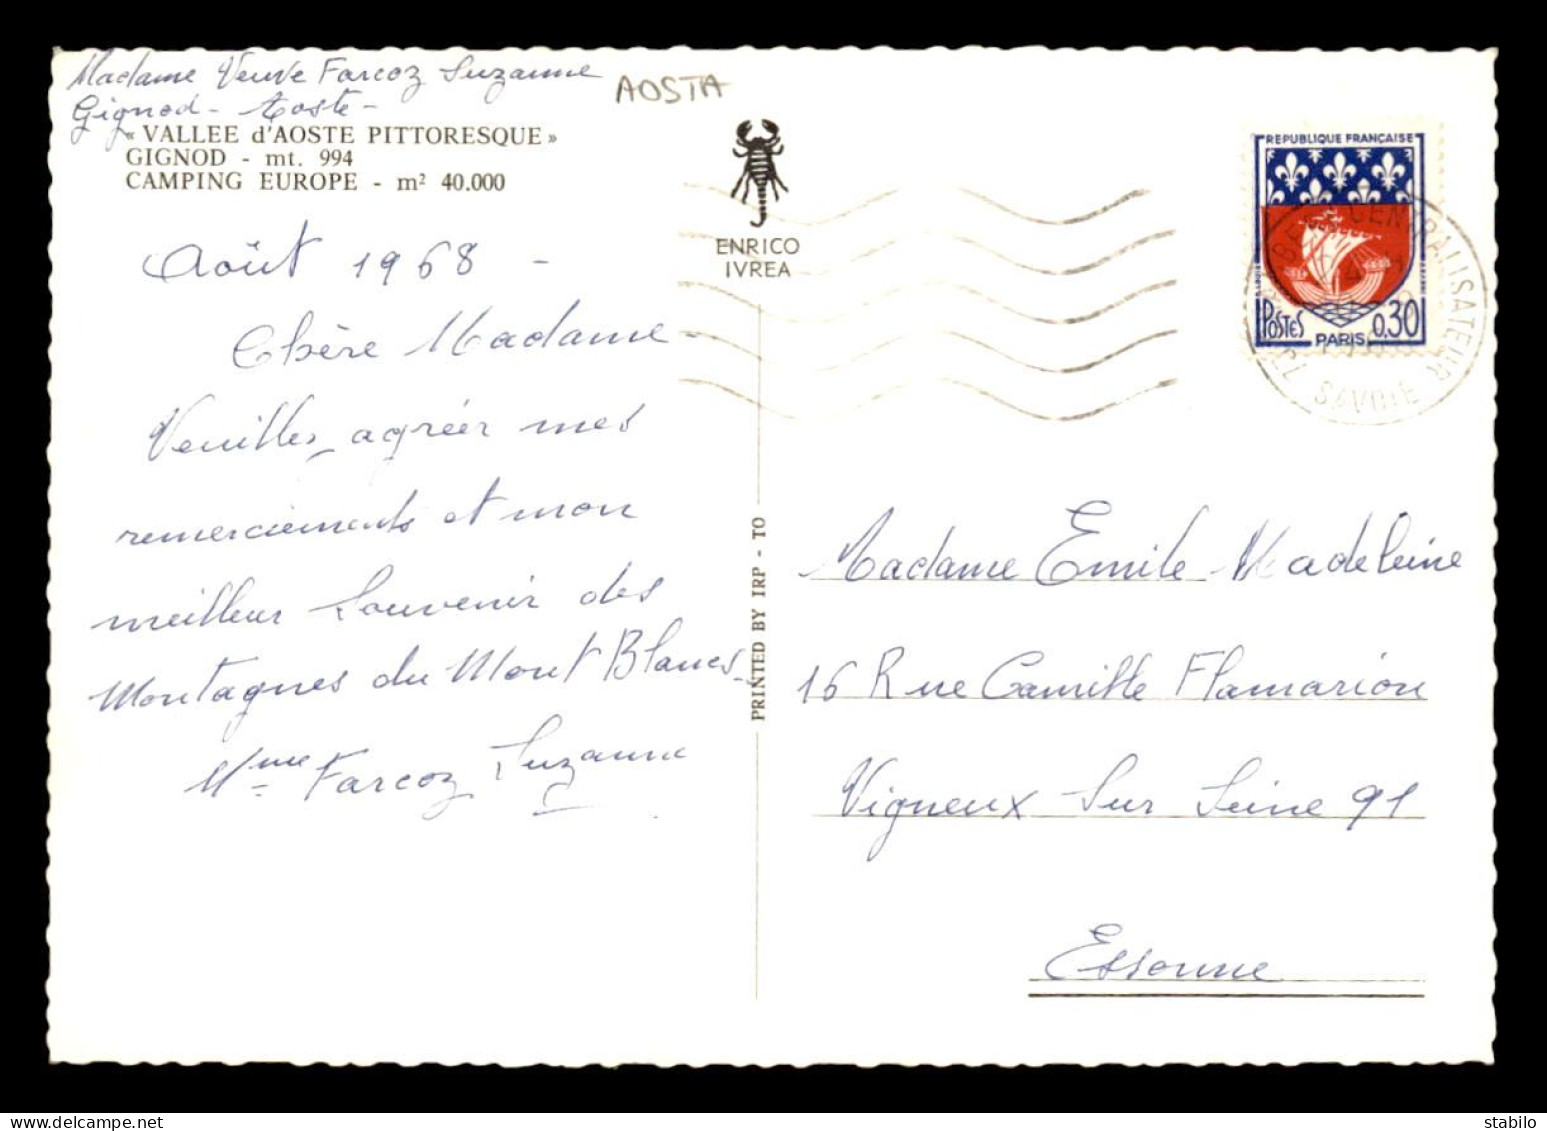 Madame Veuve Farcoz Suzanne
Gignod - Aoste -
« VALLEE d'AOSTE PITTORESQUE »
GIGNOD - mt. 994
CAMPING EUROPE - m² 40.000
AOSTA
ENRICO
IVREA
Août 1968 -
Chère Madame -
Veuillez agréér mes
remerciements et mon
meilleur Souvenir des
Montagnes du Mont Blanc
Mme Farcoz Suzanne
PRINTED BY IRP - TO
REPUBLIQUE FRANÇAISE
POSTES
0.30
PARIS
CENTRALISATEUR
SAVOIE
Madame Emile Madeleine
16 Rue Camille Flamarion
Vigneux Sur Seine 91
Essonne
delcampe.net
stabilo